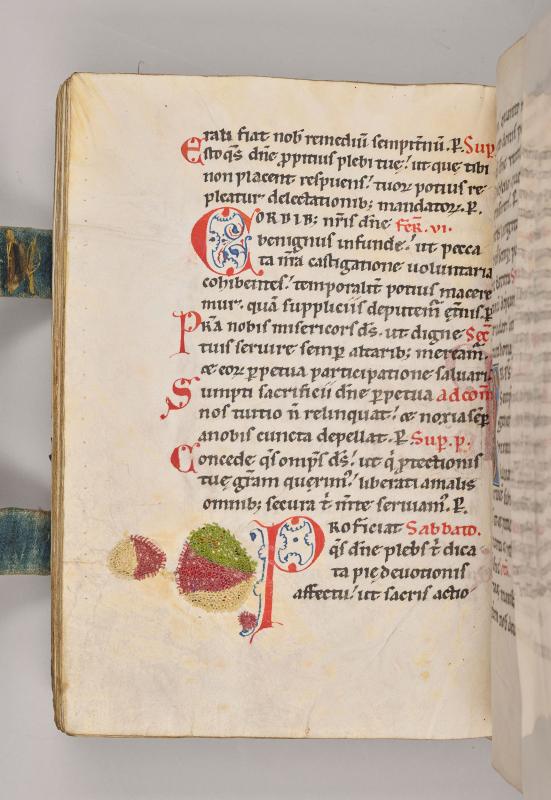 erali fiat nob̄ remediū sempit̄nū. P. Sup̄.
Esto q̄s dn̄e ꝓpitius plebi tue, ut que tibi
non placent respuens, tuoꝝ potius re
pleatur delectationib; mandatoꝝ. P.
CORDIB; nr̄is dn̄e Fer̄. vi.
benignus infunde, ut pecca
ta nr̄a castigatione uoluntaria
cohibentes, temporalit̄ potius macere
mur, quā suppliciis deputemur et̄nis. P
Pr̄a nobis misericors ds̄, ut digne Sec̄
tuis seruire semp̄ altarib; mereām̄,
& eoꝝ perpetua participatione saluari.
Sumpti sacrificii dn̄e ꝑpetua ad com̄
nos tuitio n̄ relinquat, & noxia semp̄
a nobis cuncta depellat. P. Sup. p.
Concede q̄s omp̄s ds̄, ut q̄ ꝓtectionis
tuę gr̄am querim̄, liberati a malis
omnib; secura t̄ m̄te seruiam̄. P.
PROFICIAT Sabbato.
q̄s dn̄e plebs t̄ dica
ta pię deuotionis
affectu, ut sacris actio